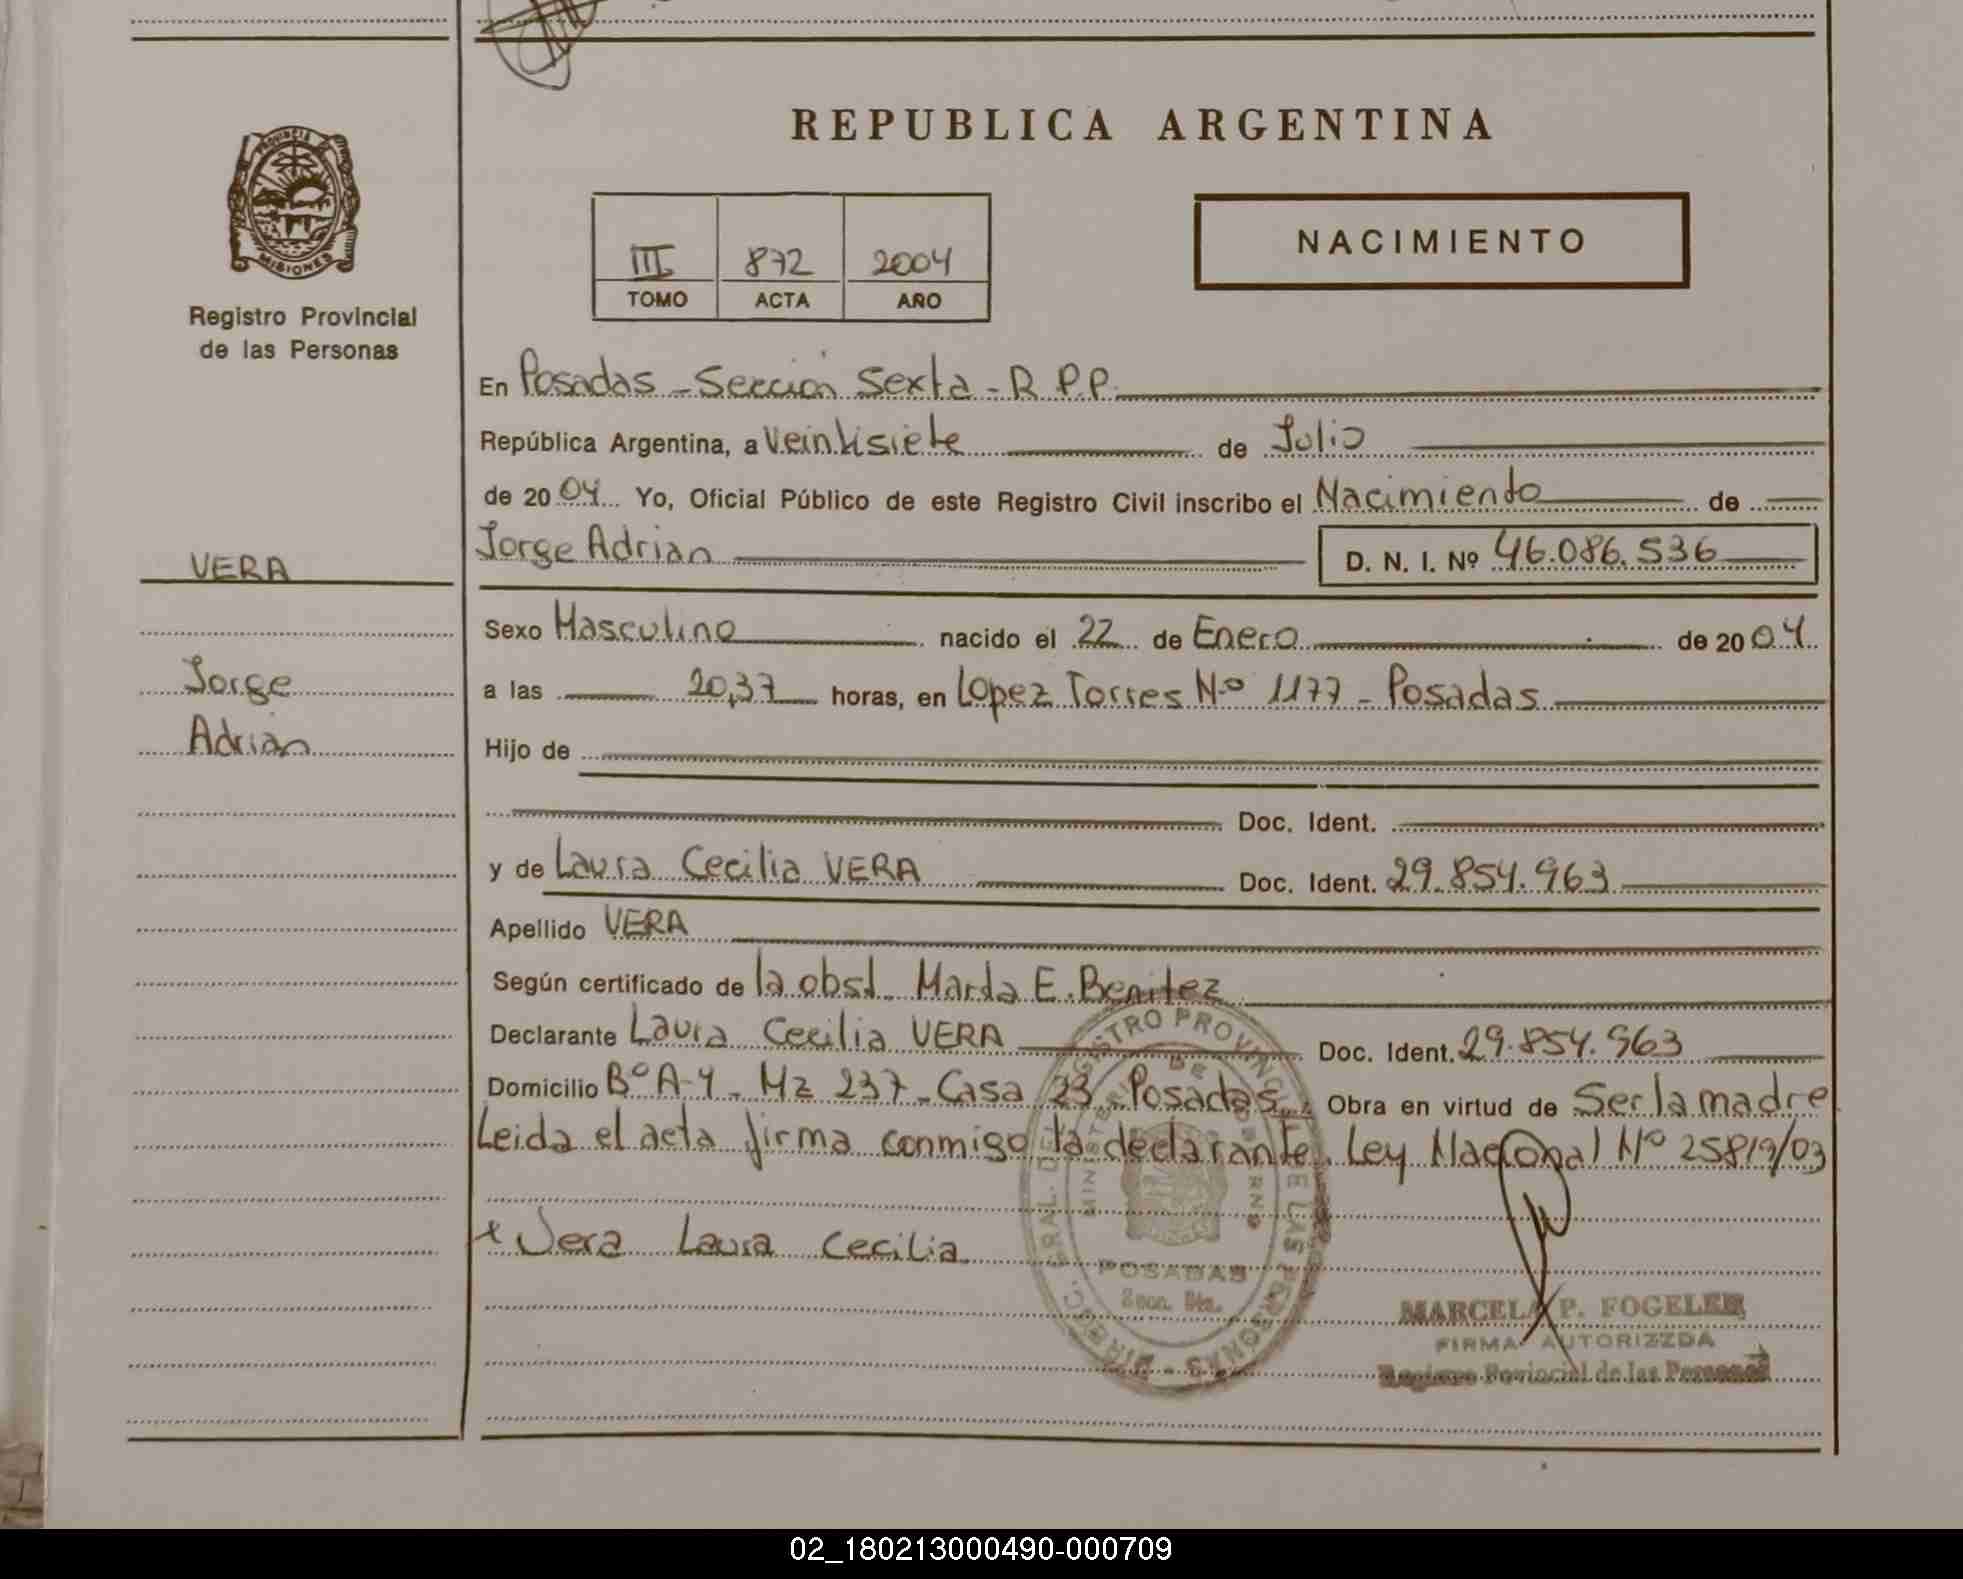 REPUBLICA ARGENTINA
PROVINCIA DE
MISIONES
Registro Provincial
de las Personas
III 872 2004
TOMO ACTA AÑO
NACIMIENTO
En Posadas - Sección Sexta - R.P.P.
República Argentina, a Veintisiete de Julio
de 2004 Yo, Oficial Público de este Registro Civil inscribo el Nacimiento de
Jorge Adrian D. N. I. Nº 46.086.536
VERA
Sexo Masculino nacido el 22 de Enero de 2004
Jorge
a las 20,37 horas, en Lopez Torres Nº 1177 - Posadas
Adrian
Hijo de
Doc. Ident.
y de Laura Cecilia VERA Doc. Ident. 29.854.963
Apellido VERA
Según certificado de la obst. Marta E. Benitez
Declarante Laura Cecilia VERA Doc. Ident. 29.854.963
Domicilio Bº A-4 - Mz 237 - Casa 23 - Posadas Obra en virtud de Ser la madre
Leida el acta firma conmigo la declarante. Ley Nacional Nº 25819/03
x Vera Laura Cecilia
DIRECC. GRAL. DEL REGISTRO PROVINC. DE LAS PERSONAS
MINISTERIO DE GOBIERNO
POSADAS
Secc. 6ta.
MARCELA P. FOGELER
FIRMA AUTORIZZDA
Registro Provincial de las Personas
02_180213000490-000709